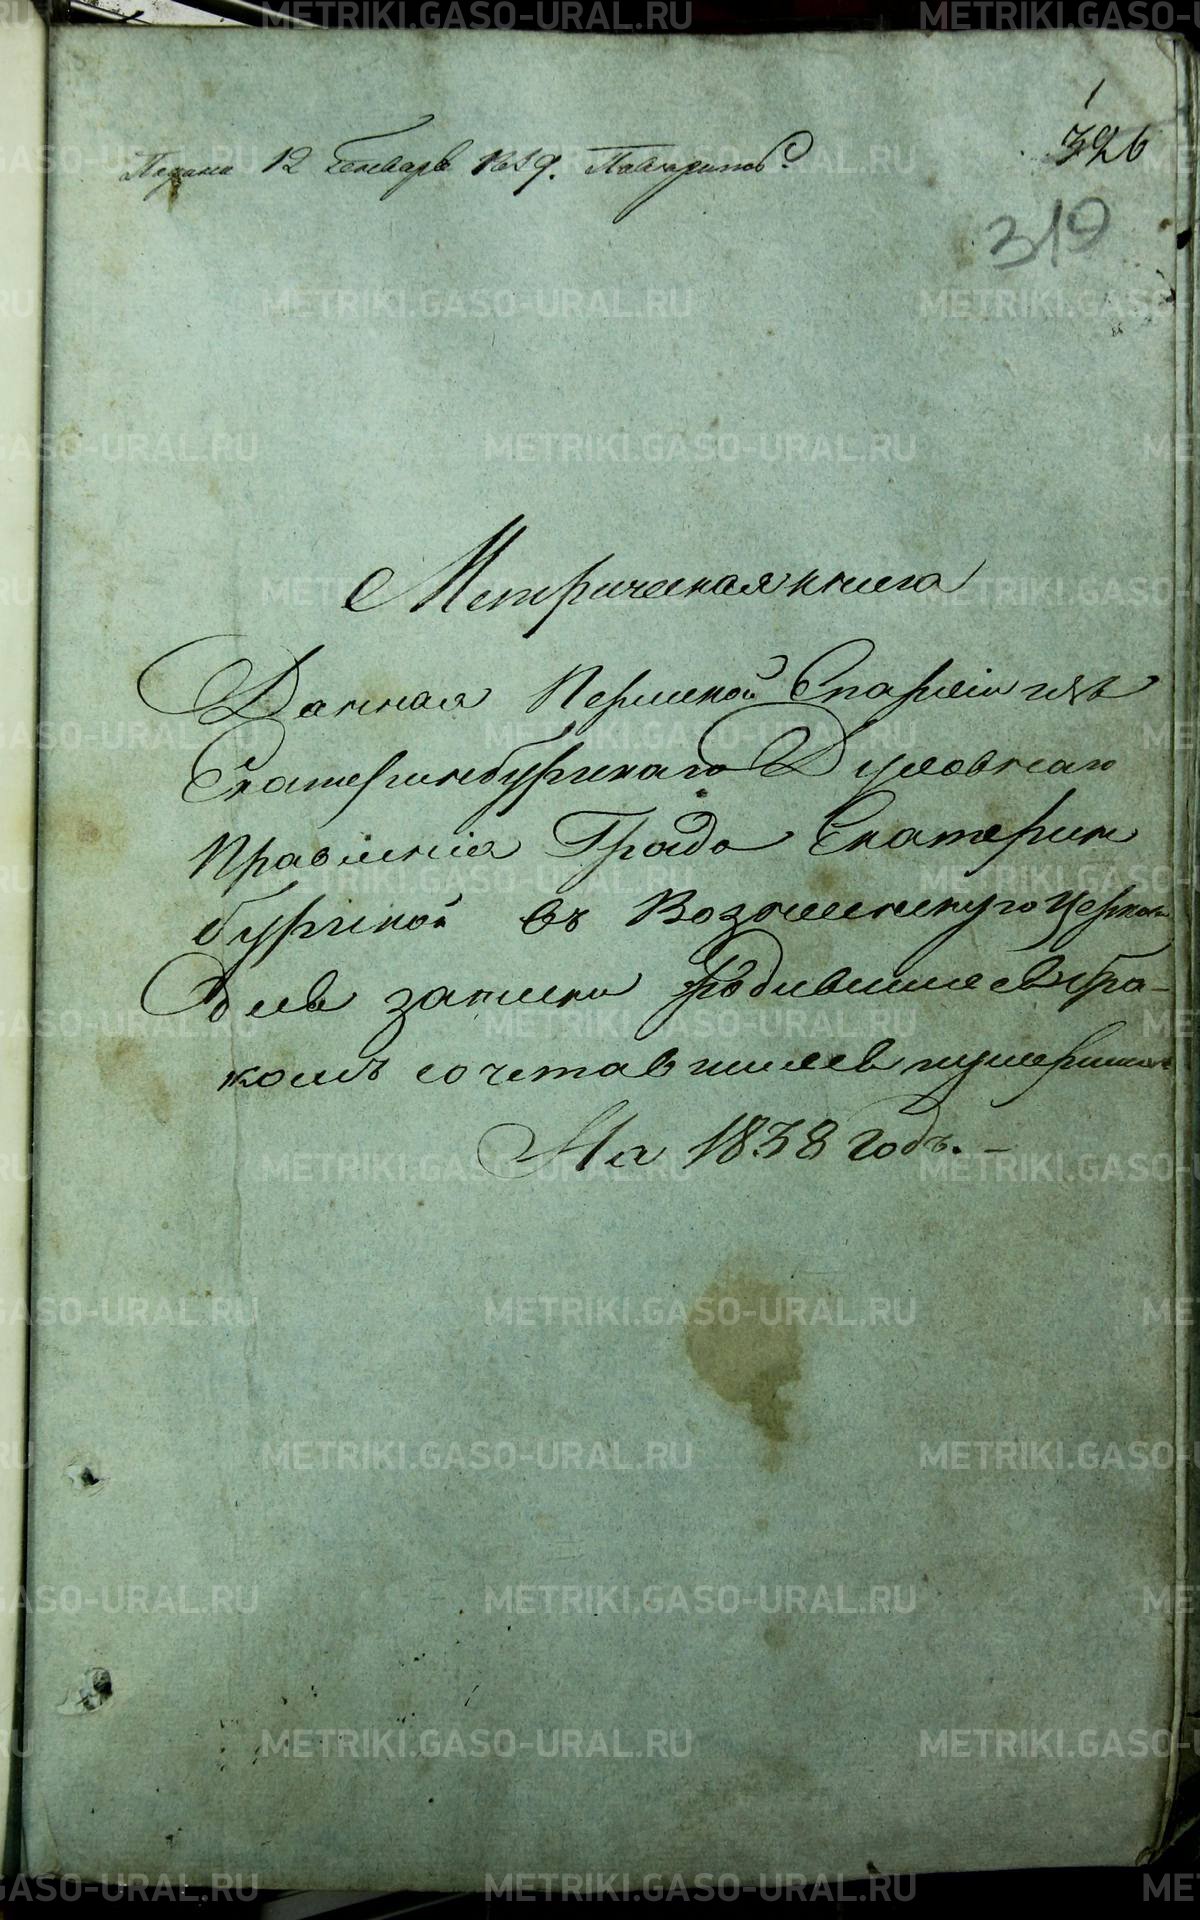 1
326
Подана 12 Генваря 1839.
319
Метрическая книга
Данная Пермской Епархiи изъ
Екатеринбургскаго Духовнаго
Правленiя Града Екатерин
бургской въ Вознесенскую Церковь
для записки родившихся бра-
комъ сочетавшихся и умершихъ
На 1838 годъ. –
METRIKI.GASO-URAL.RU